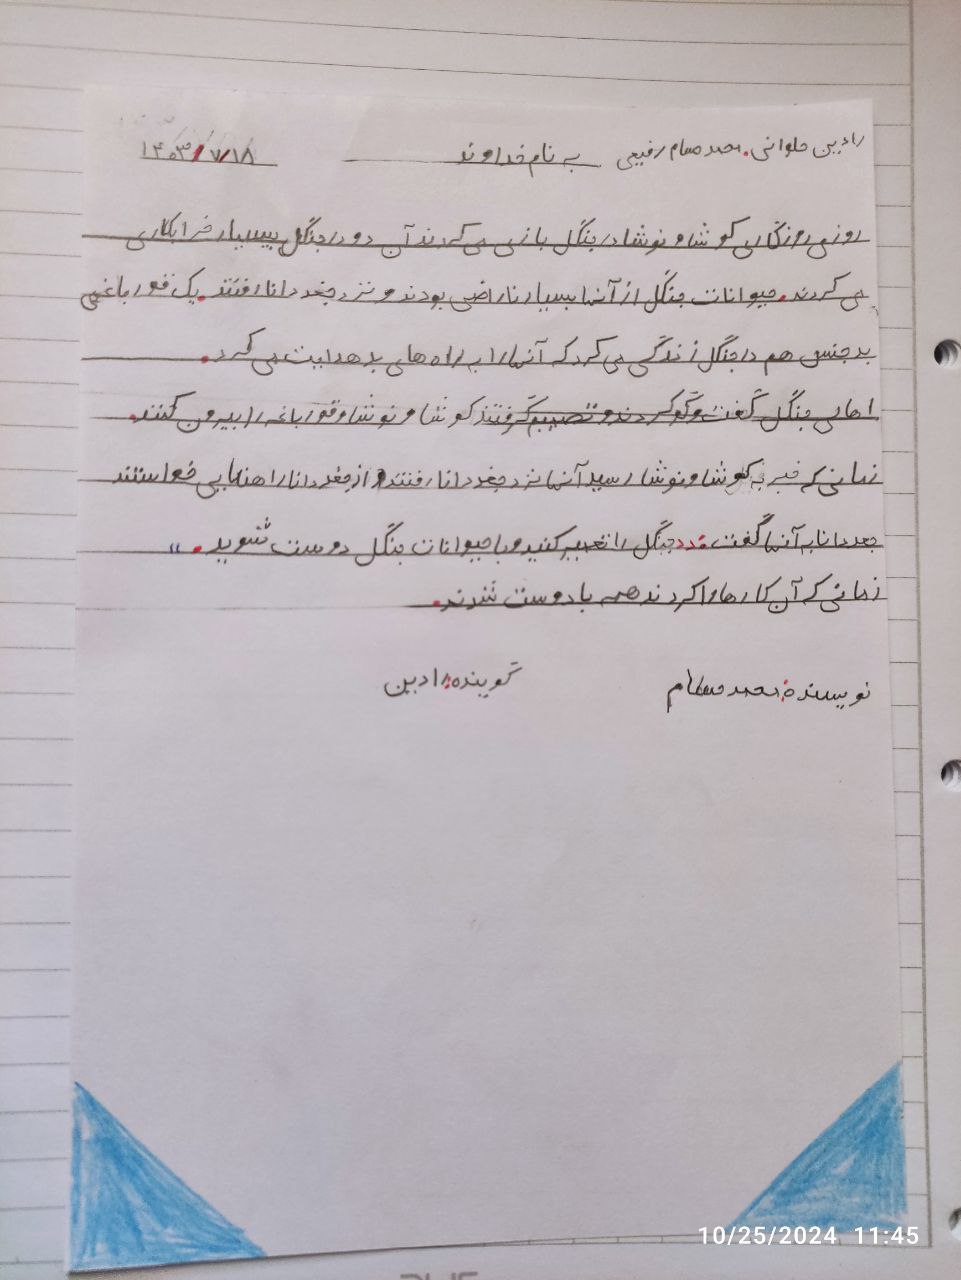 رادین حلوانی. محمد حسام رفیعی به نام خداوند ۱۴۰۳/۷/۱۸
روزی روزگاری کوشا و نوشا در جنگل بازی می کردند آن دو در جنگل بسیار خرابکاری
می کردند. حیوانات جنگل از آنها بسیار ناراضی بودند و نزد جغد دانا رفتند. یک قورباغه‌ی
بدجنس هم در جنگل زندگی می کرد که آنها را به راه های بد هدایت می کرد.
اهالی جنگل گفت و گو کردند و تصمیم گرفتند کوشا و نوشا و قورباغه را بیرون کنند.
زمانی که خبر به کوشا و نوشا رسید آنها نزد جغد دانا رفتند و از جغد دانا راهنمایی خواستند
جغد دانا به آنها گفت: «جنگل را تعمیر کنید و با حیوانات جنگل دوست شوید.»
زمانی که آن کارها را کردند همه با دوست شدند.
نویسنده: محمد حسام گوینده: رادین
10/25/2024 11:45